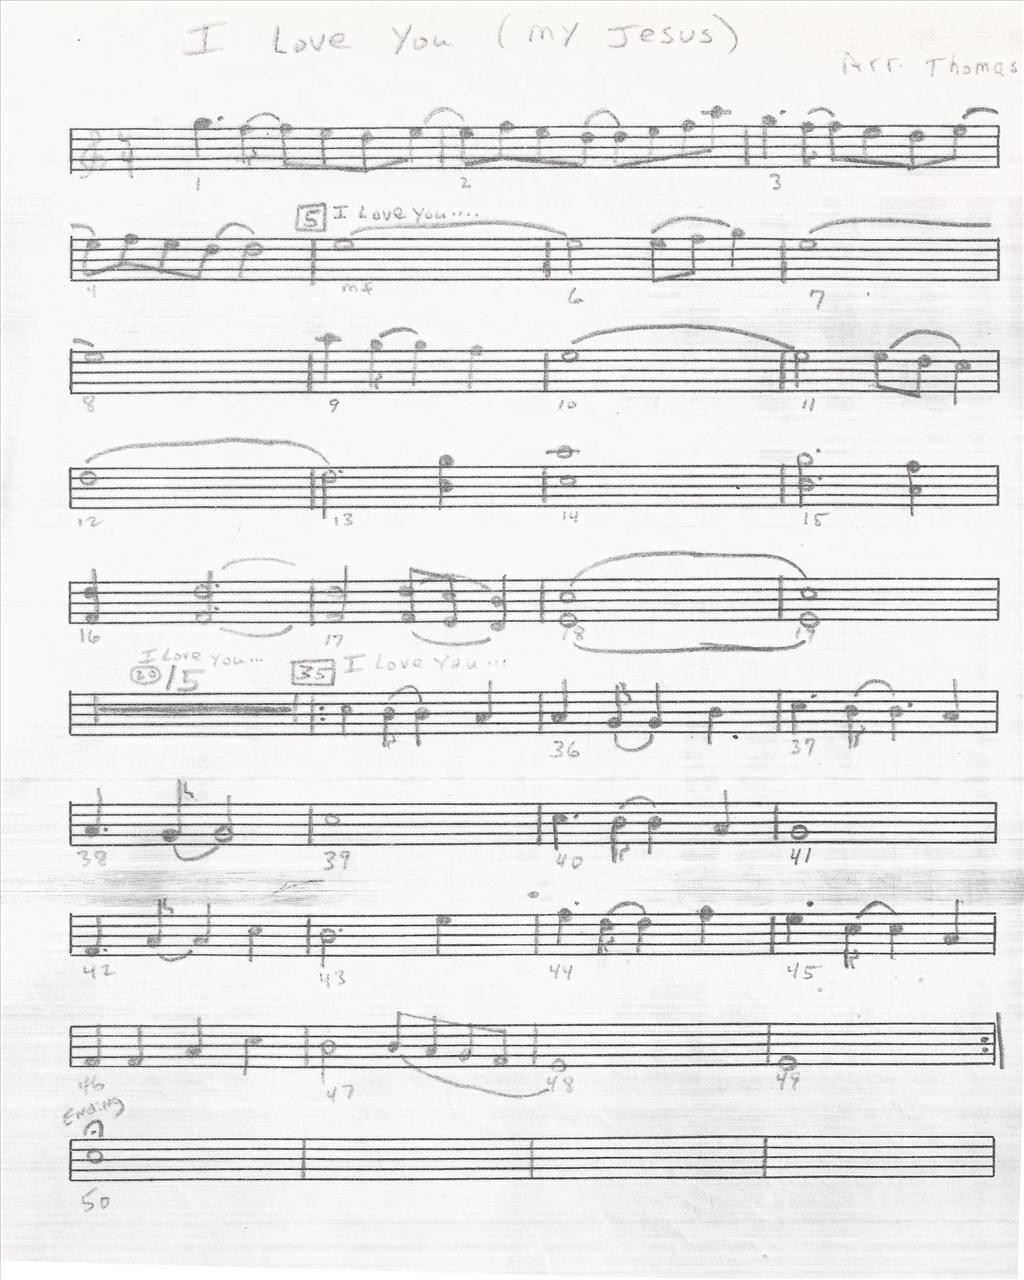 I Love You (my Jesus)
Arr. Thomas
4/4
1 2 3
5 I Love You....
4 mf 6 7
8 9 10 11
12 13 14 15
16 17 18 19
I Love You...
20 /5 35 I Love You...
36 37
38 39 40 41
42 43 44 45
46 47 48 49
Ending
50